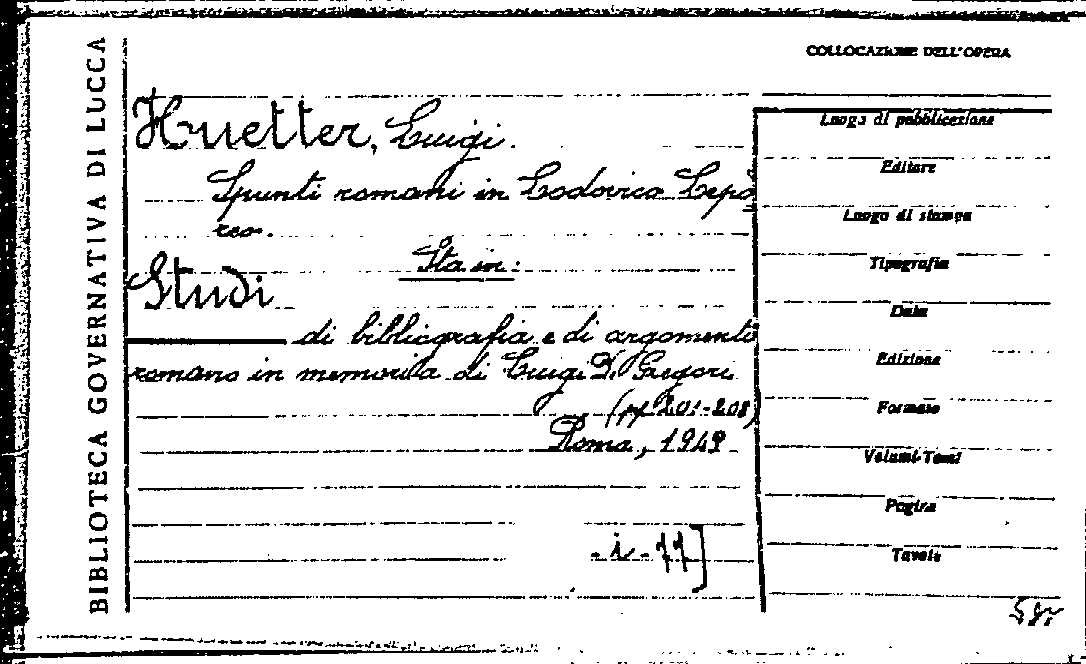 BIBLIOTECA GOVERNATIVA DI LUCCA
COLLOCAZIONE DELL'OPERA
Huetter, Luigi.
Spunti romani in Lodovico Lepo
reo.
Sta in:
Studi
di bibliografia e di argomento
romano in memoria di Luigi D. Gregori
(pp 201-208)
Roma, 1949
- i - 77]
Luogo di pubblicazione
Editore
Luogo di stampa
Tipografia
Data
Edizione
Formato
Volumi-Tomi
Pagine
Tavole